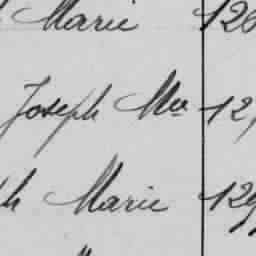 Marie 126
Joseph Mie 12
ph Marie 129